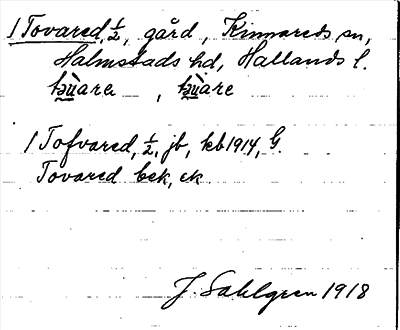 /Tovared, ½, gård, Kinnareds sn,
Halmstads hd, Hallands l.
/Tofvared, ½, jb, kb 1914, G.
Tovared bek, ek.
J. Sahlgren 1918